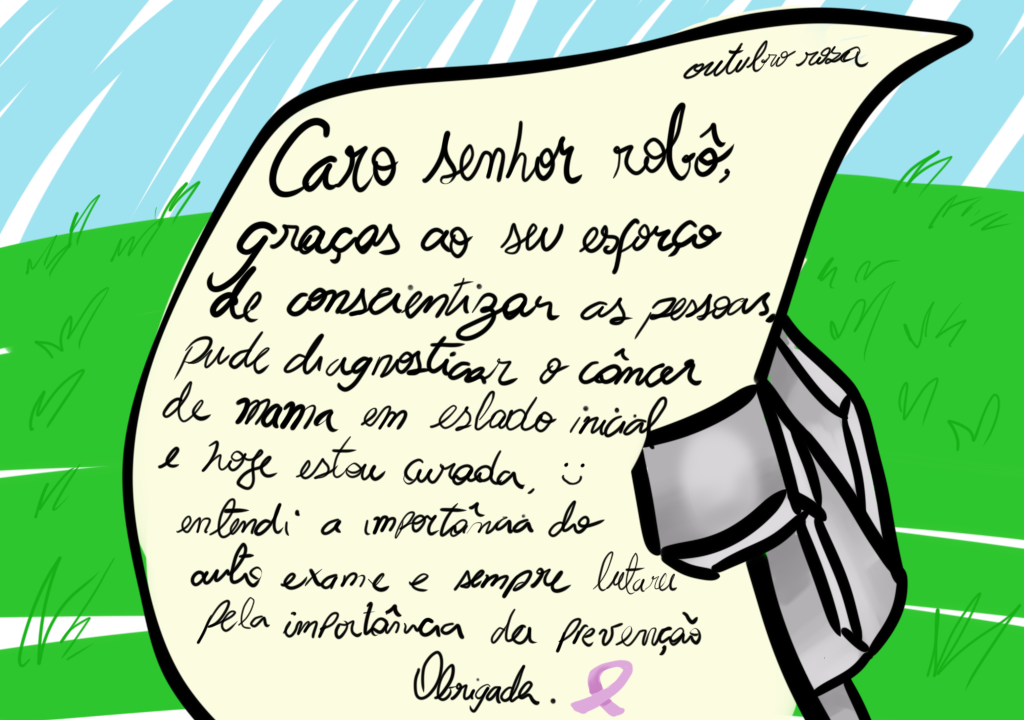 outubro roza
Caro senhor robô,
graças ao seu esforço
de conscientizar as pessoas,
pude diagnosticar o câncer
de mama em estado inicial
e hoje estou curada, :)
entendi a importância do
auto exame e sempre lutarei
pela importância da prevenção
Obrigada.